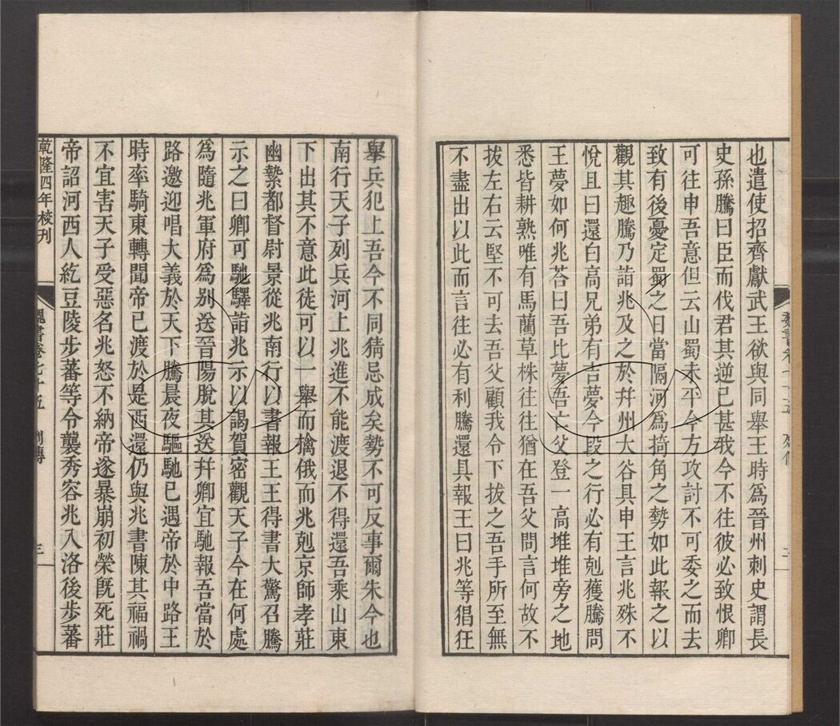 也遣使招齊獻武王欲與同舉王時爲晉州刺史謂長
史孫騰曰臣而伐君其逆已甚我今不往彼必致恨卿
可往申吾意但云山蜀未平今方攻討不可委之而去
致有後憂定蜀之日當隔河爲掎角之勢如此報之以
觀其趣騰乃詣兆及之於并州大谷具申王言兆殊不
悅且曰還白高兄弟有吉夢今段之行必有剋獲騰問
王夢如何兆荅曰吾比夢吾亡父登一高堆堆旁之地
悉皆耕熟唯有馬藺草株往往猶在吾父問言何故不
拔左右云堅不可去吾父顧我令下拔之吾手所至無
不盡出以此而言往必有利騰還具報王曰兆等猖狂
舉兵犯上吾今不同猜忌成矣勢不可反事爾朱今也
南行天子列兵河上兆進不能渡退不得還吾乘山東
下出其不意此徒可以一舉而擒俄而兆剋京師孝莊
幽縶都督尉景從兆南行以書報王王得書大驚召騰
示之曰卿可馳驛詣兆示以謁賀密觀天子今在何處
爲隨兆軍府爲别送晉陽脫其送并卿宜馳報吾當於
路邀迎唱大義於天下騰晨夜驅馳已遇帝於中路王
時率騎東轉聞帝已渡於是西還仍與兆書陳其福禍
不宜害天子受惡名兆怒不納帝遂暴崩初榮旣死莊
帝詔河西人紇豆陵步蕃等令襲秀容兆入洛後步蕃
乾隆四年校刊
魏書卷七十五 列傳
三